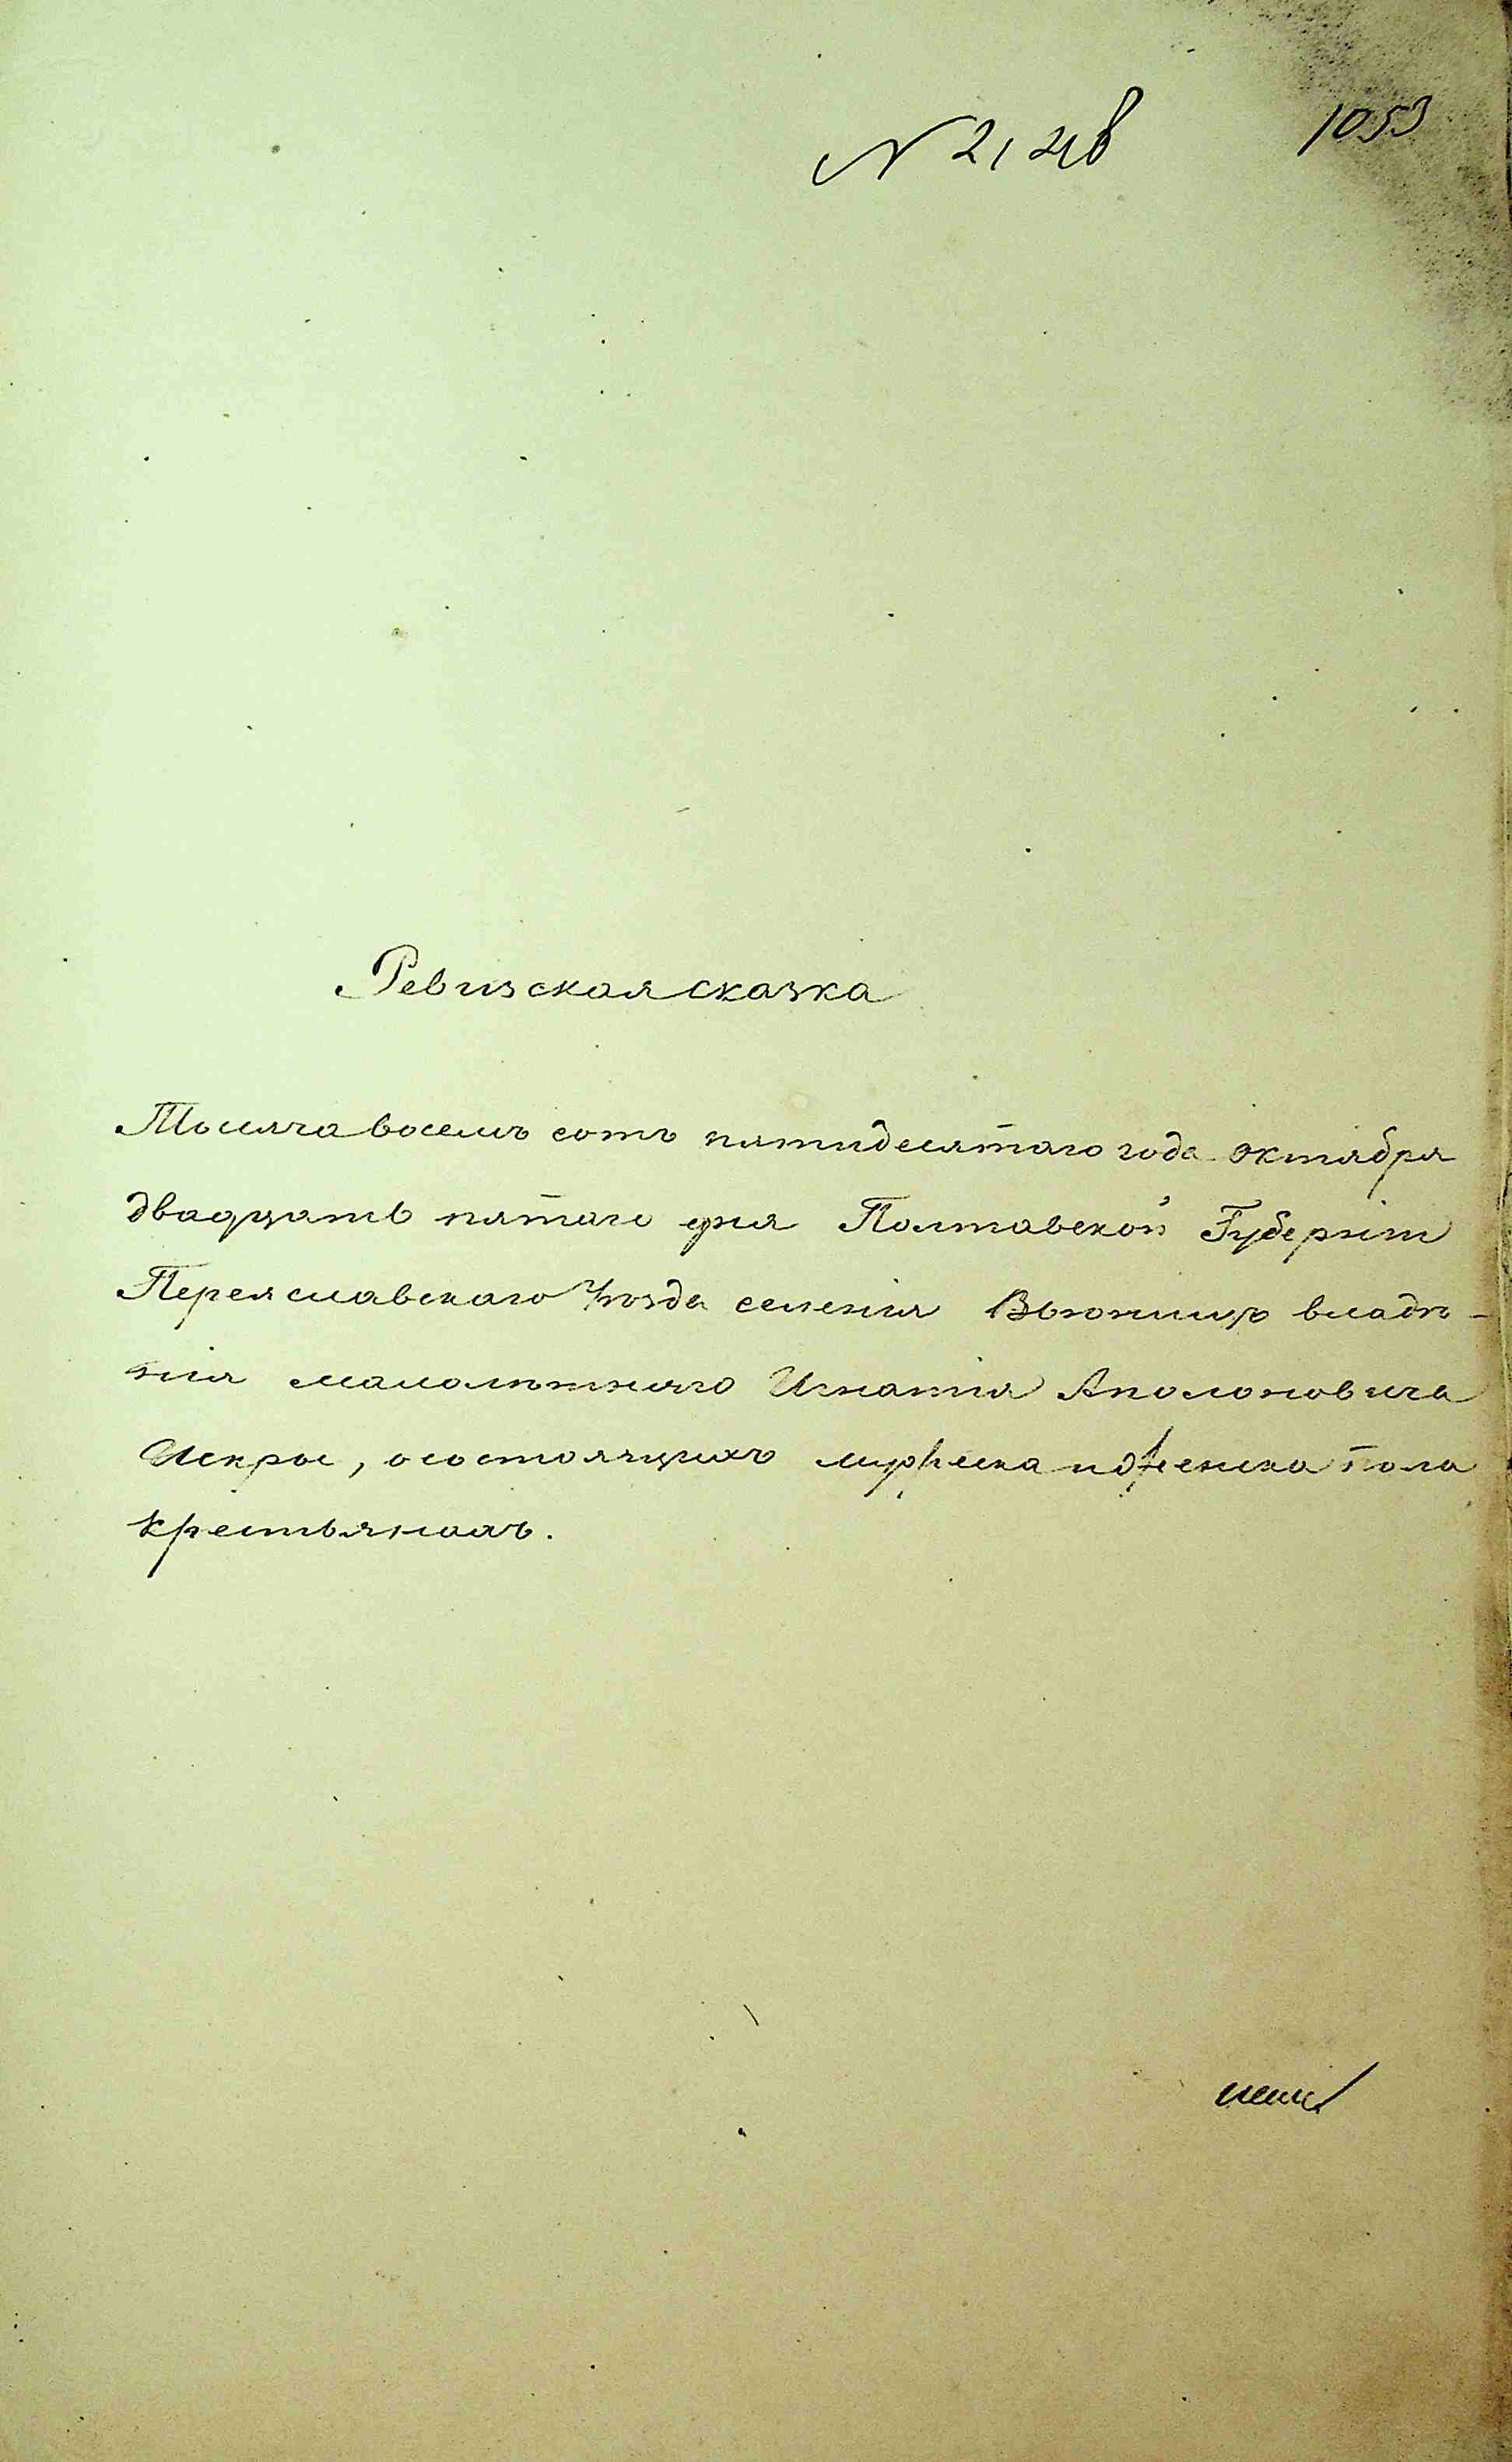 1053
Ревизская сказка
Тысяча восемь сотъ пятидесятаго года октября
двадцать пятаго дня Полтавской Губерніи
Переяславскаго Уѣзда селенія Вьюнищъ владѣ-
нія малолѣтняго Игнатія Аполоновича
Искры, о состоящихъ мужеска и женска пола
крестьянахъ.